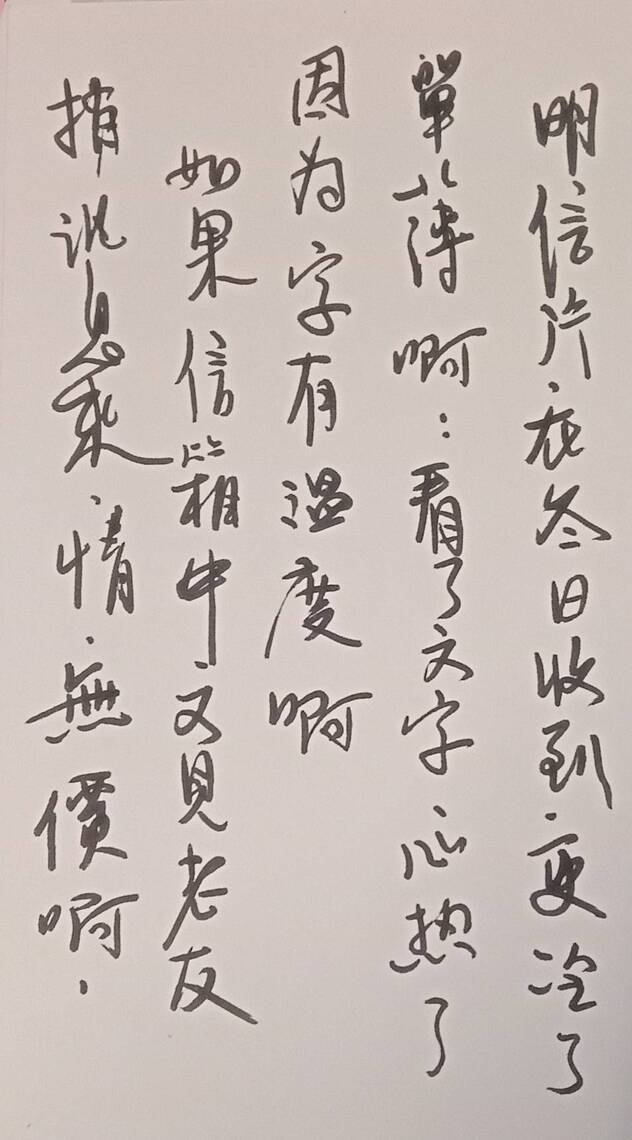 明信片.在冬日收到.更冷了
單薄啊:看了文字心热了
因为字有温度啊
如果信箱中又見老友
捎訊息來.情.無價啊.